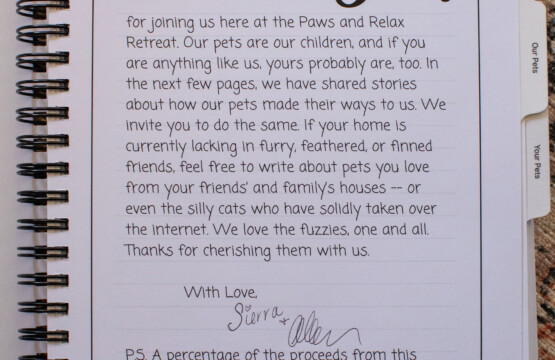 for joining us here at the Paws and Relax
Retreat. Our pets are our children, and if you
are anything like us, yours probably are, too. In
the next few pages, we have shared stories
about how our pets made their ways to us. We
invite you to do the same. If your home is
currently lacking in furry, feathered, or finned
friends, feel free to write about pets you love
from your friends' and family's houses -- or
even the silly cats who have solidly taken over
the internet. We love the fuzzies, one and all.
Thanks for cherishing them with us.
With Love,
Sierra +
Allen
P.S. A percentage of the proceeds from this
Our Pets
Your Pets